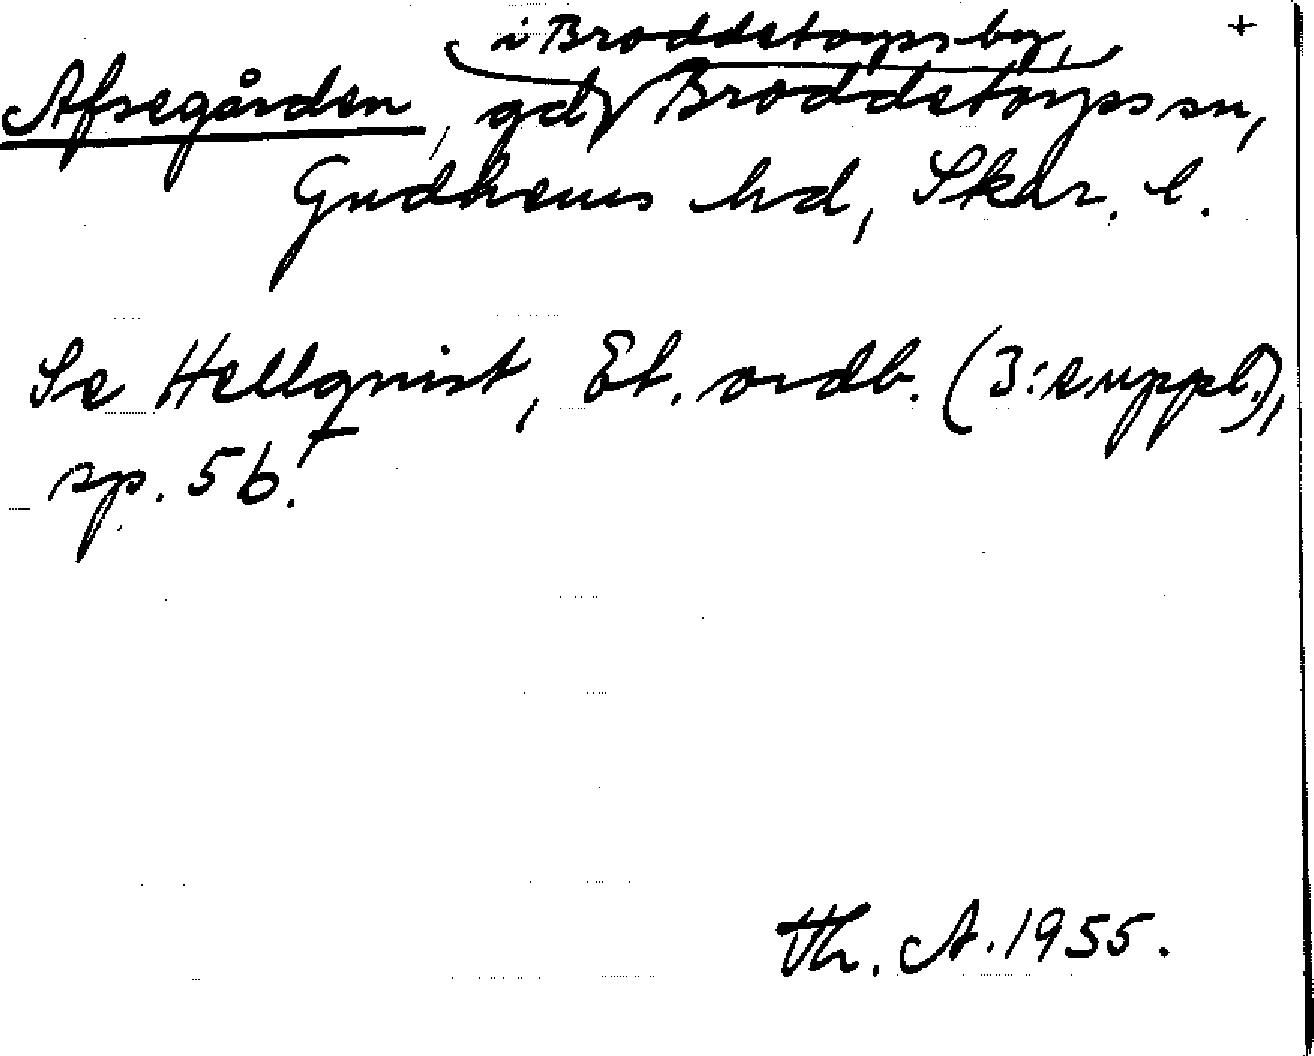 i Broddetorps by,
+
Afsegården, gd Broddetorps sn,
Gudhems hd, Skar. l.
Se Hellquist, Et. ordb. (3: suppl.),
sp. 5b.
Th. A. 1955.